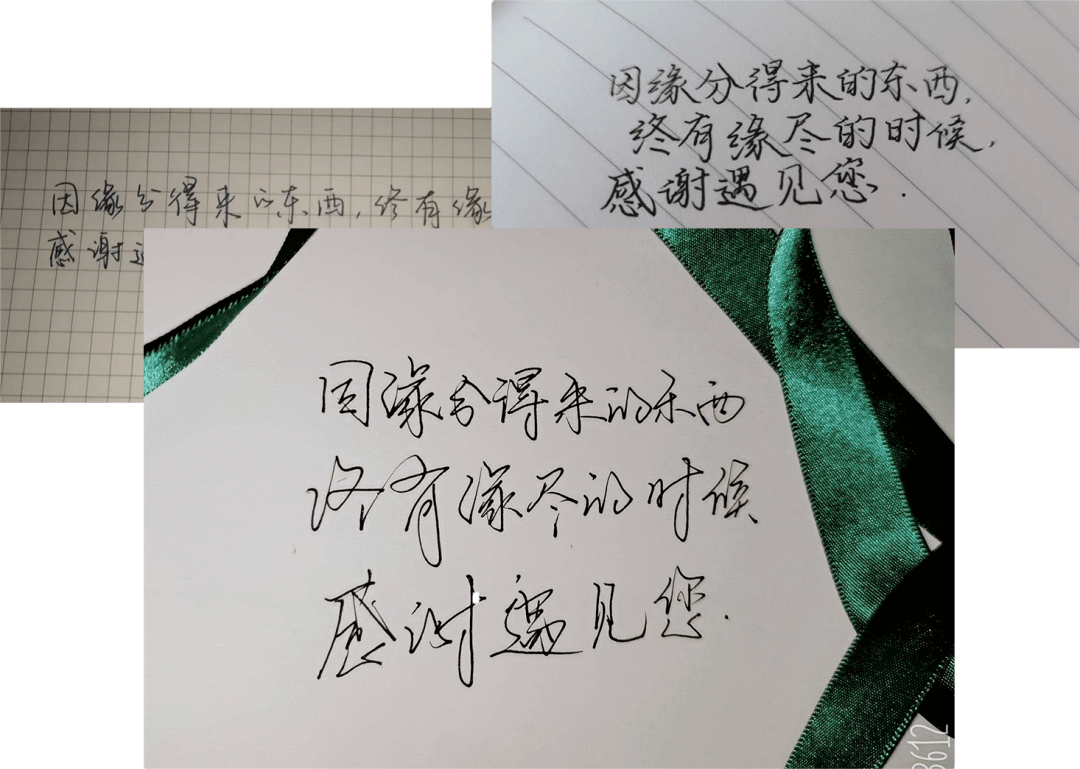 因缘分得来的东西，终有缘
感谢
因缘分得来的东西，
终有缘尽的时候，
感谢遇见您.
因缘分得来的东西
终有缘尽的时候
感谢遇见您.
3612